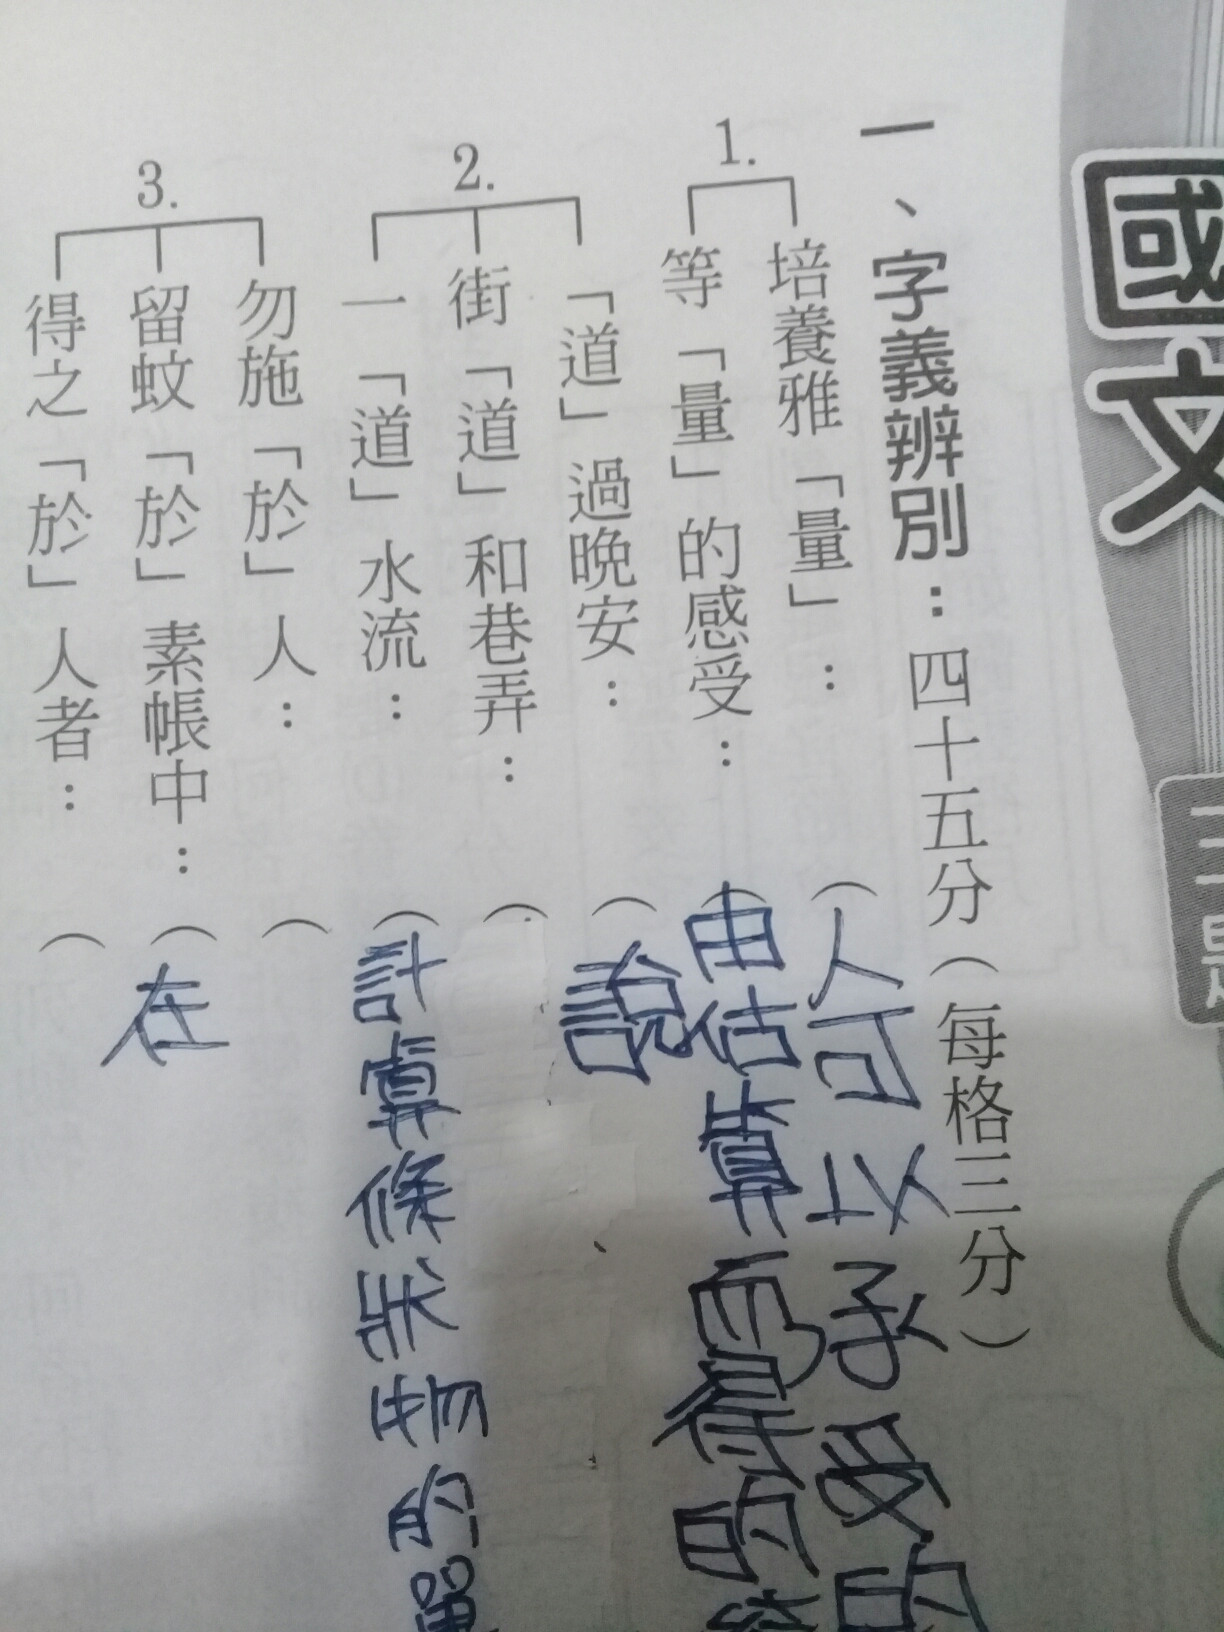 國文
一、字義辨別：四十五分（每格三分）
1.
培養雅「量」：（人可以承受的
等「量」的感受：（由估算而得的
2.
「道」過晚安：（說
街「道」和巷弄：（
一「道」水流：（計算條狀物的單
3.
勿施「於」人：（
留蚊「於」素帳中：（在
得之「於」人者：（